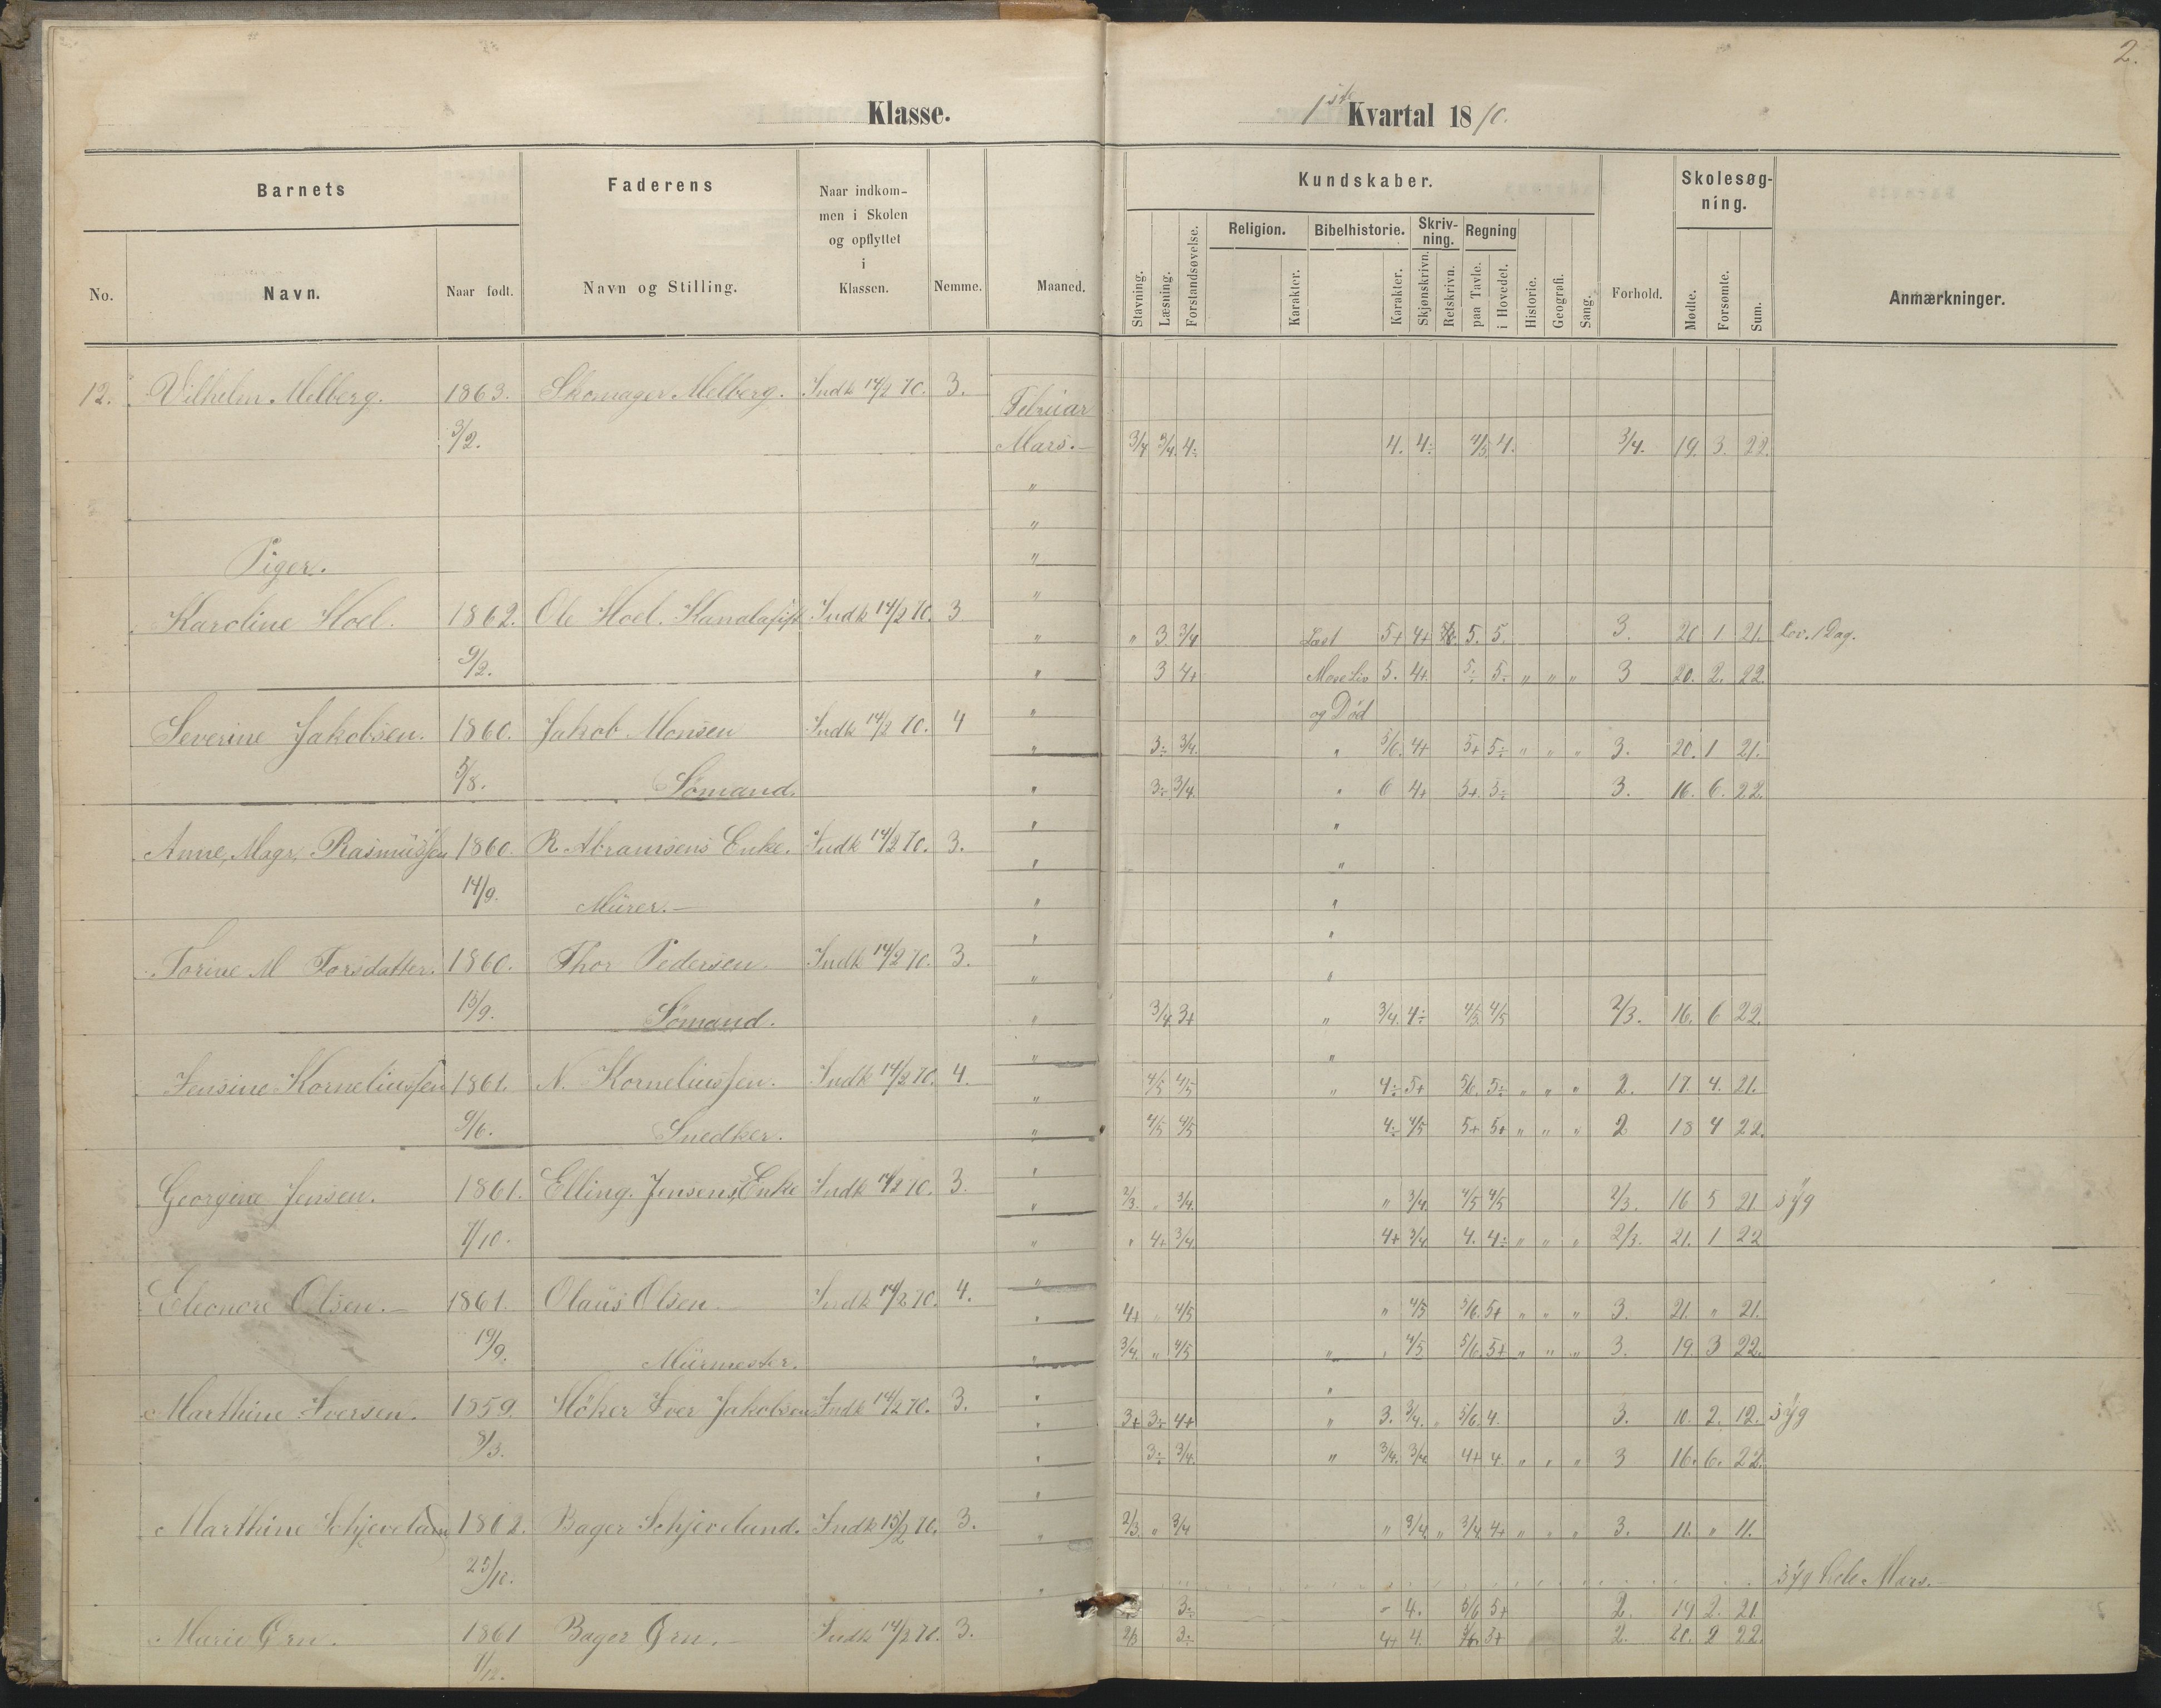 2.
Klasse.
1ste Kvartal 1870.
Barnets
Faderens
Naar indkom-
men i Skolen
og opflyttet
i
Klassen.
Nemme.
Maaned.
No.
Navn.
Naar født.
Navn og Stilling.
Kundskaber.
Skolesøg-
ning.
Stavning.
Læsning.
Forstandsøvelse.
Religion.
Karakter.
Bibelhistorie.
Karakter.
Skriv-
ning.
Skjønskrivn.
Retskrivn.
Regning
paa Tavle.
i Hovedet.
Historie.
Geografi.
Sang.
Forhold.
Mødte.
Forsømte.
Sum.
Anmærkninger.
12. Vilhelm Melberg. 1863. Skomager Melberg. Indk 14/2 70. 3.
Februar
3/2. Mars. 3/4 3/4 4÷ 4. 4÷ 4/5 4. 3/4. 19. 3. 22.
Piger.
Karoline Hoel. 1862. Ole Hoel. Indk 14/2 70. 3
" 3 3/4 Læst 5+ 4+ 5. 5. 3. 20 1 21 1 Dag.
9/2. 3 4+ Mose Liv 5. 4+ 5÷ 5÷ " " " 3 20. 2. 22.
og Død
Severine Jakobsen. 1860. Jakob Monsen Indk 14/2 70. 4
3÷ 3/4. " 5/6. 4+ 5+ 5÷ " " " 3. 20. 1 21.
5/8. Sömand. 3÷ 3/4. " 6 4+ 5+ 5÷ 3. 16. 6. 22.
Anne, Magr, Rasmussen 1860. R. Abramsens Enke. Indk 14/2 70. 3.
14/9. Mürer.
Torine M Torsdatter. 1860. Thor Pedersen. Indk 14/2 70. 3.
13/9. Sömand. 3/4 3+ " 3/4. 4÷ 4/5 4/5 2/3. 16. 6 22.
Jensine Korneliussen 1861. N. Korneliussen. Indk 14/2 70. 4.
4/5 4/5 " 4÷ 5+ 5/6. 5÷ " " " 2. 17. 4. 21.
9/6. Snedker. 4/5 4/5 4÷ 4/5 5+ 5+ " " " 2 18 4 22.
Georgine Jensen. 1861. Elling. Jensens Enke Indk 14/2 70. 3.
2/3. " 3/4. " 3/4 4/5 4/5 2/3. 16 5 21 syg
7/10. " 4+ 3/4 4+ 3/4 4. 4÷ " " " 2/3. 21. 1 22
Eleonore Olsen. 1861. Olaüs Olsen. Indk 14/2 70. 4.
4+ " 4/5 " 4/5 5/6. 5+ " " " 3. 21. " 21.
19/9. Mürmester. 3/4. " 4/5 " " 4/5 5/6. 5+ " " " 3. 19. 3 22.
Marthine Iversen. 1859. Höker Iver Jakobsen Indk 14/2 70. 3.
3+ 3÷ 4+ " 3. 3/4. " 5/6 4. 3. 10. 2. 12. syg
8/3. 3÷ 3/4. " 3/4. 3/4 4+ 4. " " " 3 16. 6. 22.
Marthine Schjeveland 1862. Bager Schjeveland. Indk 15/2 70. 3.
2/3. " 3/4 " 3/4. " 3/4 4+ " " " 3. 11. " 11.
25/12. syg hele Mars.
3÷ " 4. 5/6 5+ 2. 19 2. 21.
Marie Ørn. 1861 Bager Ørn. Indk 14/2 70. 3. 2/3 3÷ 4+ 4. 5+ 2. 20. 2 22.
1/12.